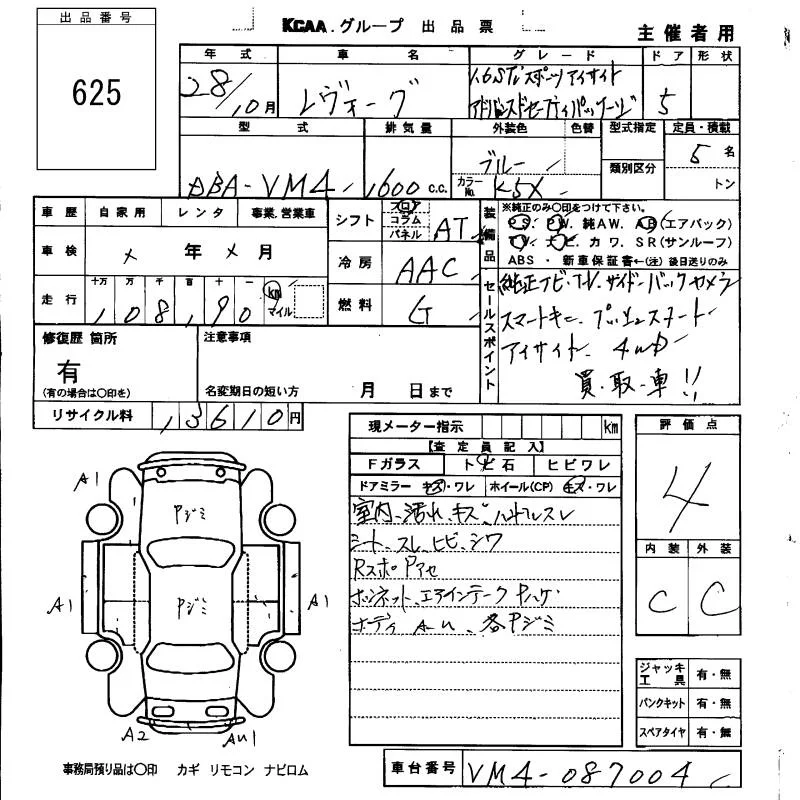 出品番号
625
KCAA.グループ 出品票
主催者用
年式 車名 グレード ドア 形状
28/10月 レヴォーグ 1.6STiスポーツアイサイト
アドバンスドセーフティパッケージ 5
型式 排気量 外装色 色替 型式指定 定員・積載
DBA-VM4 1600 c.c. ブルー 5名
カラーNo. K5X 類別区分 トン
車歴 自家用 レンタ 事業、営業車
車検 メ年メ月
走行 十万 万 千 百 十 一
108,190 km マイル
シフト フロア コラム パネル AT
冷房 AAC
燃料 G
装備品
※純正のみ○印をつけて下さい。
PS. PW. 純AW. AB(エアバック)
TV. ナビ. カワ. SR(サンルーフ)
ABS・新車保証書←(注)後日送りのみ
セールスポイント
純正ナビ・TV、サイド-バックカメラ
スマートキー、プッシュスタート
アイサイト、4WD
買・取・車!!
修復歴 箇所
有
(有の場合は○印を)
注意事項
名変期日の短い方 月 日まで
リサイクル料 13610円
現メーター指示 km
【査定員記入】
Fガラス トビ石 ヒビワレ
ドアミラー キズ・ワレ ホイール(CP) キズ・ワレ
室内、汚れ、キズ、ハンドルスレ
シート、スレ、ヒビ、シワ
Rスポ Pアセ
ボンネット、エアインテーク Pハゲ
ボディ A-U、各Pジミ
評価点
4
内装 外装
C C
ジャッキ工具 有・無
パンクキット 有・無
スペアタイヤ 有・無
A1
Pジミ
A1
Pジミ
A1
A2
AU1
事務局預り品は○印 カギ リモコン ナビロム
車台番号 VM4-087004